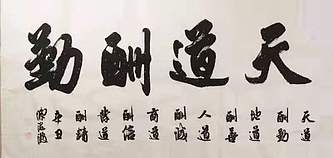 天道酬勤
天道酬勤
地道酬善
人道酬诚
商道酬信
业道酬精
辛丑